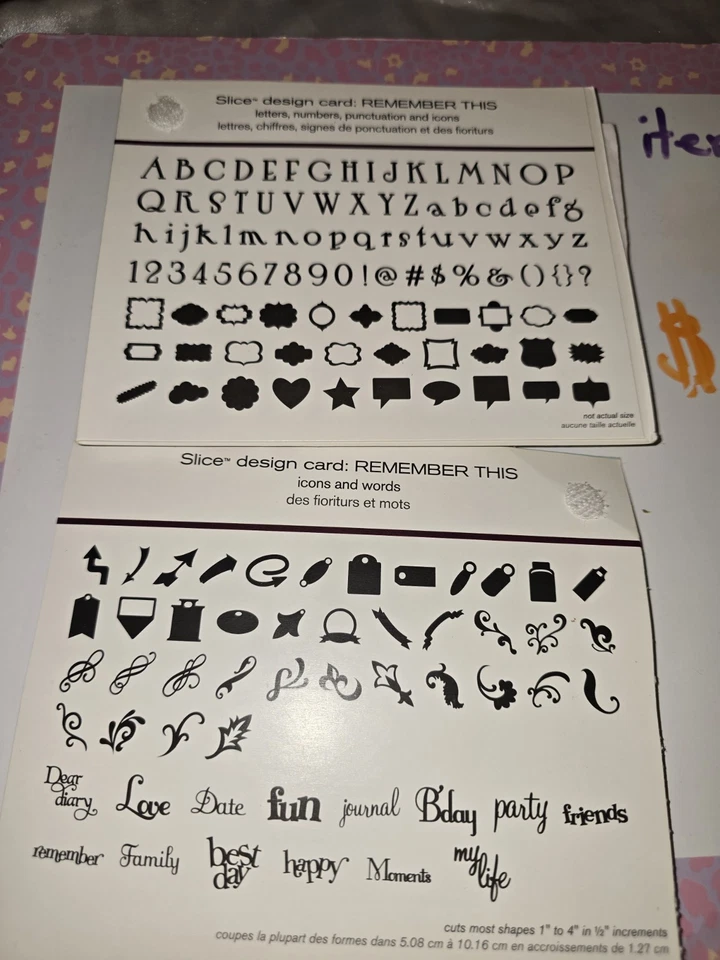 Slice™ design card: REMEMBER THIS
letters, numbers, punctuation and icons
lettres, chiffres, signes de ponctuation et des fioriturs
A B C D E F G H I J K L M N O P
Q R S T U V W X Y Z a b c d e f g
h i j k l m n o p q r s t u v w x y z
1 2 3 4 5 6 7 8 9 0 ! @ # $ % & ( ) { } ?
not actual size
aucune taille actuelle
Slice™ design card: REMEMBER THIS
icons and words
des fioriturs et mots
Dear diary Love Date fun journal B'day party friends
remember Family best day happy Moments my life
cuts most shapes 1" to 4" in ½" increments
coupes la plupart des formes dans 5.08 cm à 10.16 cm en accroissements de 1.27 cm